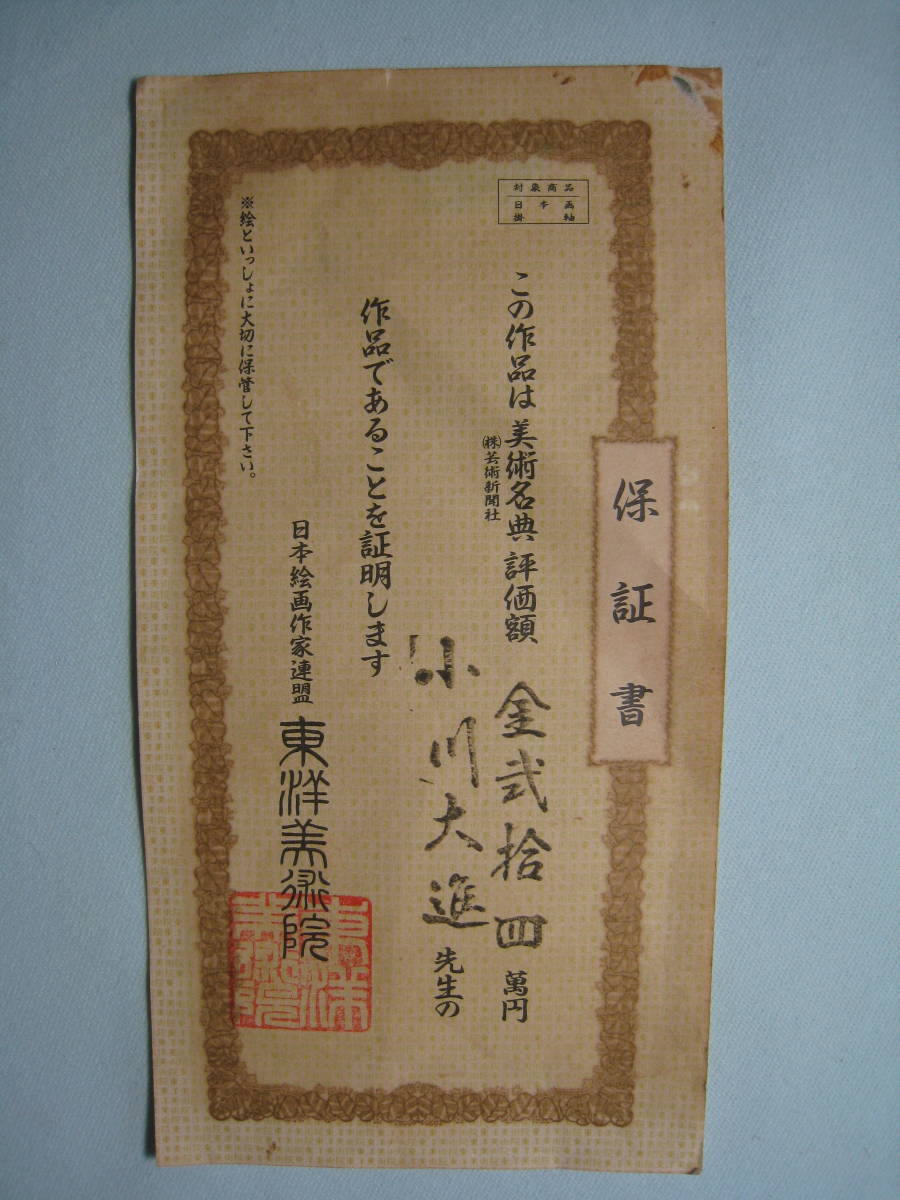 保証書
対象商品
日本画
掛軸
この作品は美術名典評価額金弐拾四萬円
㈱芸術新聞社
小川大進先生の
作品であることを証明します
日本絵画作家連盟東洋美術院
※絵といっしょに大切に保管して下さい。